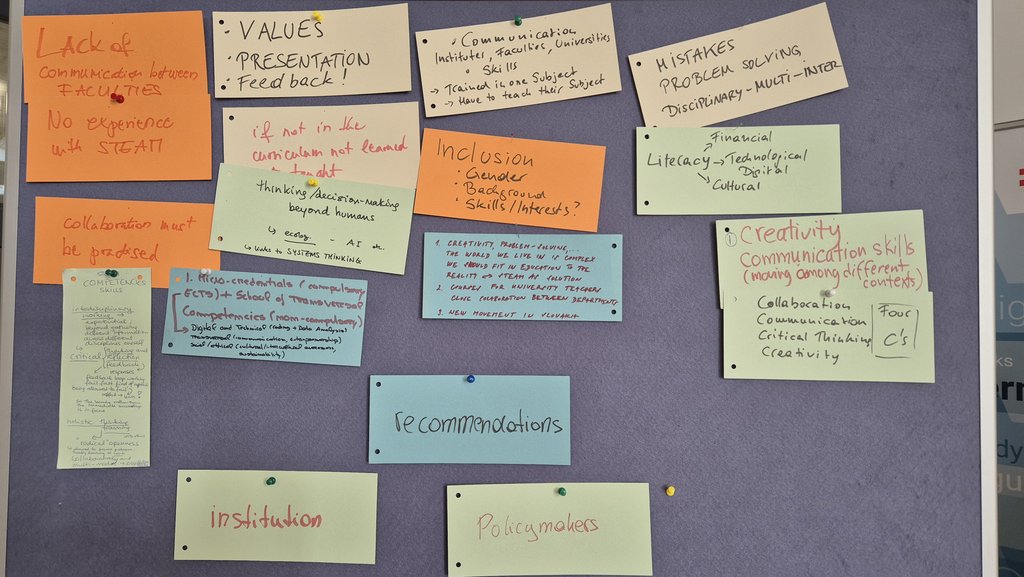 Lack of
communication between
FACULTIES
No experience
with STEAM
· VALUES
· PRESENTATION
· Feedback!
· Communication
Institutes, Faculties, Universities
· Skills
→ Trained in one Subject
→ Have to teach their Subject
MISTAKES
PROBLEM SOLVING
DISCIPLINARY-MULTI-INTER
if not in the
curriculum not learned
thinking/decision-making
beyond humans
↳ ecology - AI etc.
↳ links to SYSTEMS THINKING
Inclusion
· Gender
· Background
· Skills/Interests?
Financial
Literacy → Technological
Digital
Cultural
collaboration must
be practised
1. CREATIVITY, PROBLEM-SOLVING...
THE WORLD WE LIVE IN IS COMPLEX
WE SHOULD FIT IN EDUCATION TO THE
REALITY → STEAM AS SOLUTION
2. COURSES FOR UNIVERSITY TEACHERS
CLOSE COLLABORATION BETWEEN DEPARTMENTS
3. NEW MOVEMENT IN SLOVAKIA
① Creativity
communication skills
(moving among different
contexts)
Collaboration
Communication
Critical Thinking
Creativity
Four
C's
COMPETENCES
SKILLS
interdisciplinary
working →
beyond
different information
across different
disciplines
thinking and
critical reflection
(feedback)
responses
feedback loop
being allowed to fail
holistic thinking
"radical" openness
1. Micro-credentials (compulsory
ECTS) + School of Transversal
Competencies (non-compulsory)
↳ Digital and Technical (coding + Data Analysis)
Transversal (communication, entrepreneurship)
Social/ethical (cultural/intercultural awareness,
sustainability)
recommendations
institution
Policymakers